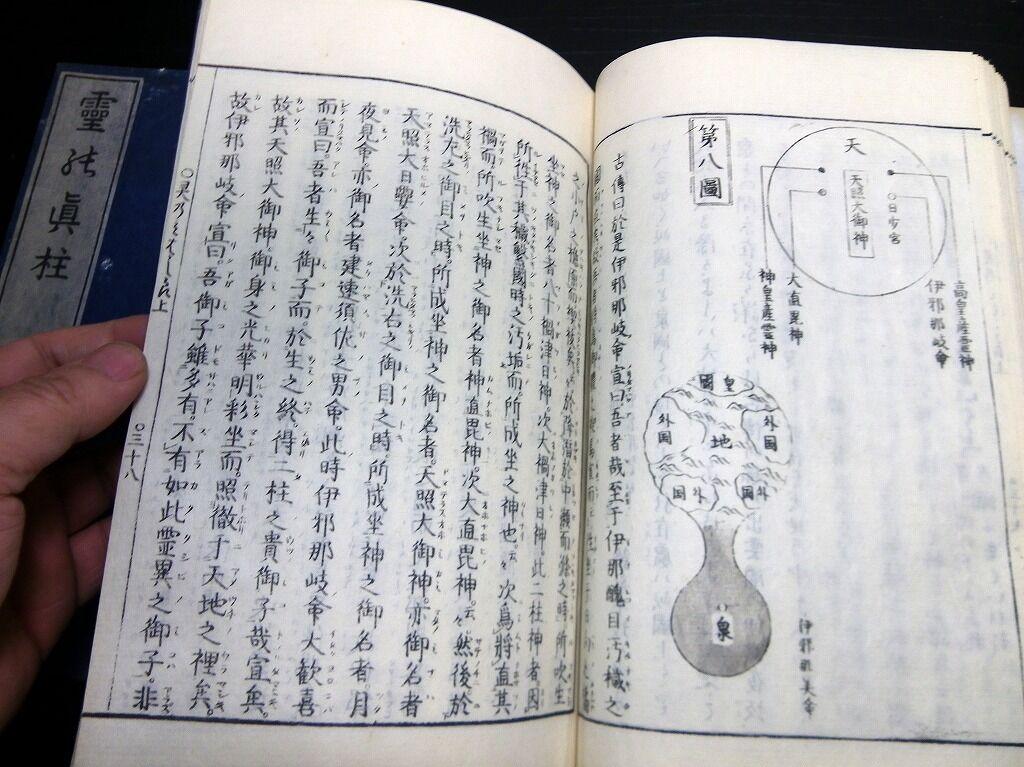 靈能眞柱
第八圖
天
天照大御神
○日少宮
高皇産霊神
伊邪那岐命
大直毘神
神皇産霊神
皇國
外国
地
外国
外国
外国
泉
伊邪那美命
古傳曰於是伊邪那岐命宣曰吾者哉至于伊那醜目汚穢之
坐神之御名者八十禍津日神。次大禍津日神。此二柱神者因
所往于其穢繁國時之汚垢而。所成坐之神也。云々次爲將直其
禍而所吹生坐神之御名者神直毘神。次大直毘神。云々然後於
洗左之御目之時。所成坐神之御名者。天照大御神。亦御名者
天照大日孁命。次於洗右之御目之時所成坐神之御名者月
夜見命亦御名者建速須佐之男命。此時伊邪那岐命大歡喜
而宣曰。吾者生々御子而。於生之終。得二柱之貴御子哉宣矣。
故其天照大御神。御身之光華明彩坐而。照徹于天地之裡矣。
故伊邪那岐命宣曰。吾御子雖多有。不有如此靈異之御子。非
○灵乃みはしら上
○三十八